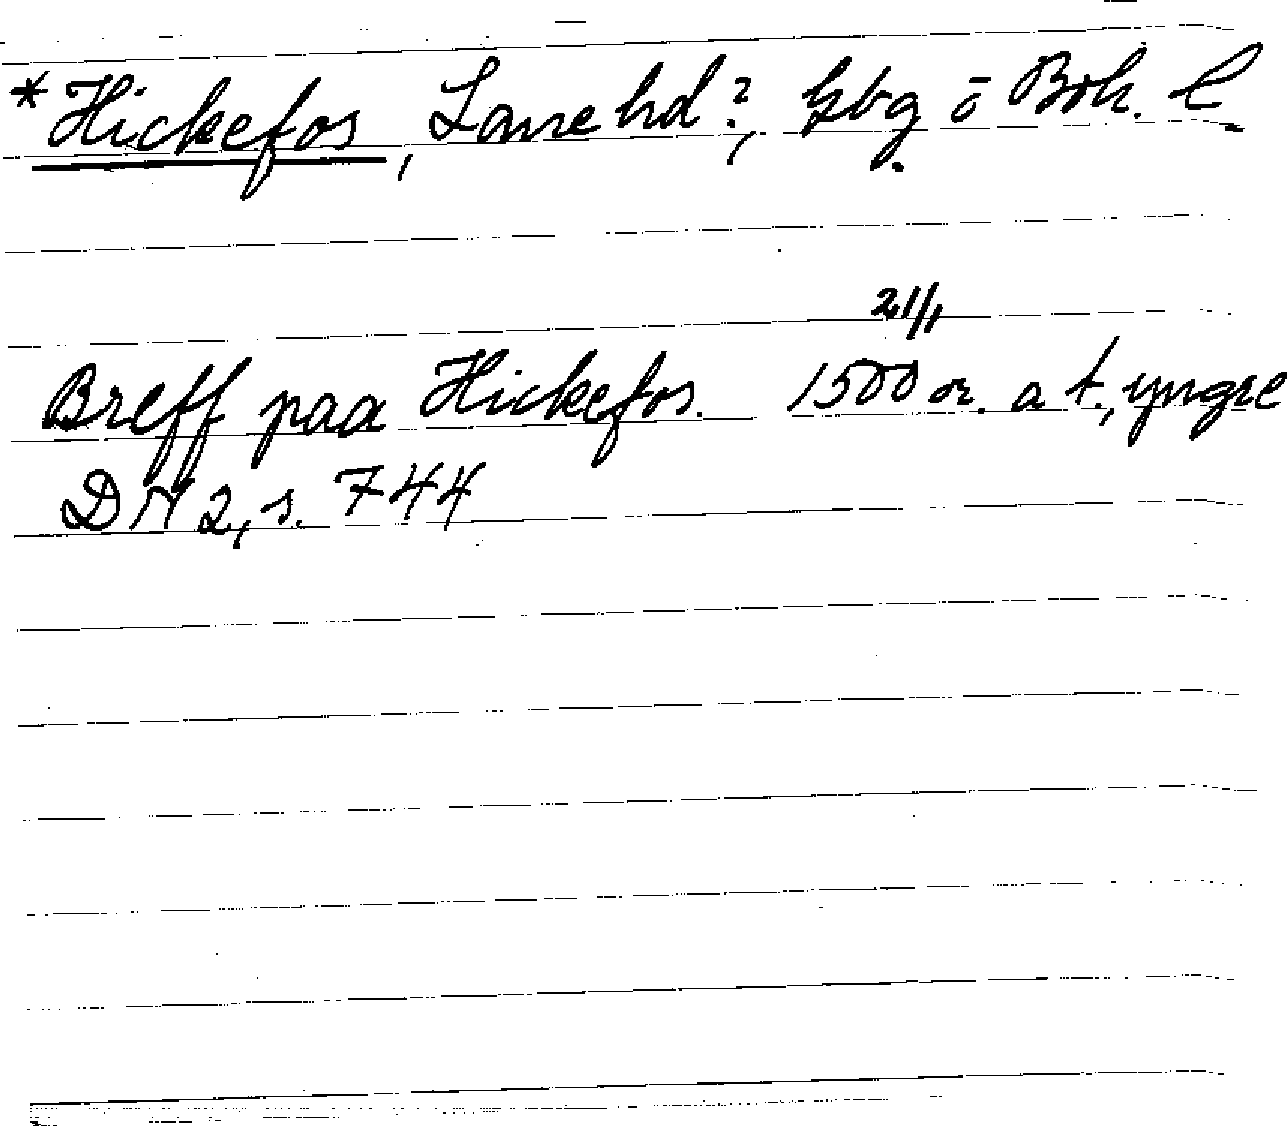 *Hickefos, Lane hd?, Gbg ō Boh. l
21/1
Breff paa Hickefos. 1500 or. a t., yngre
DN 2, s. 744